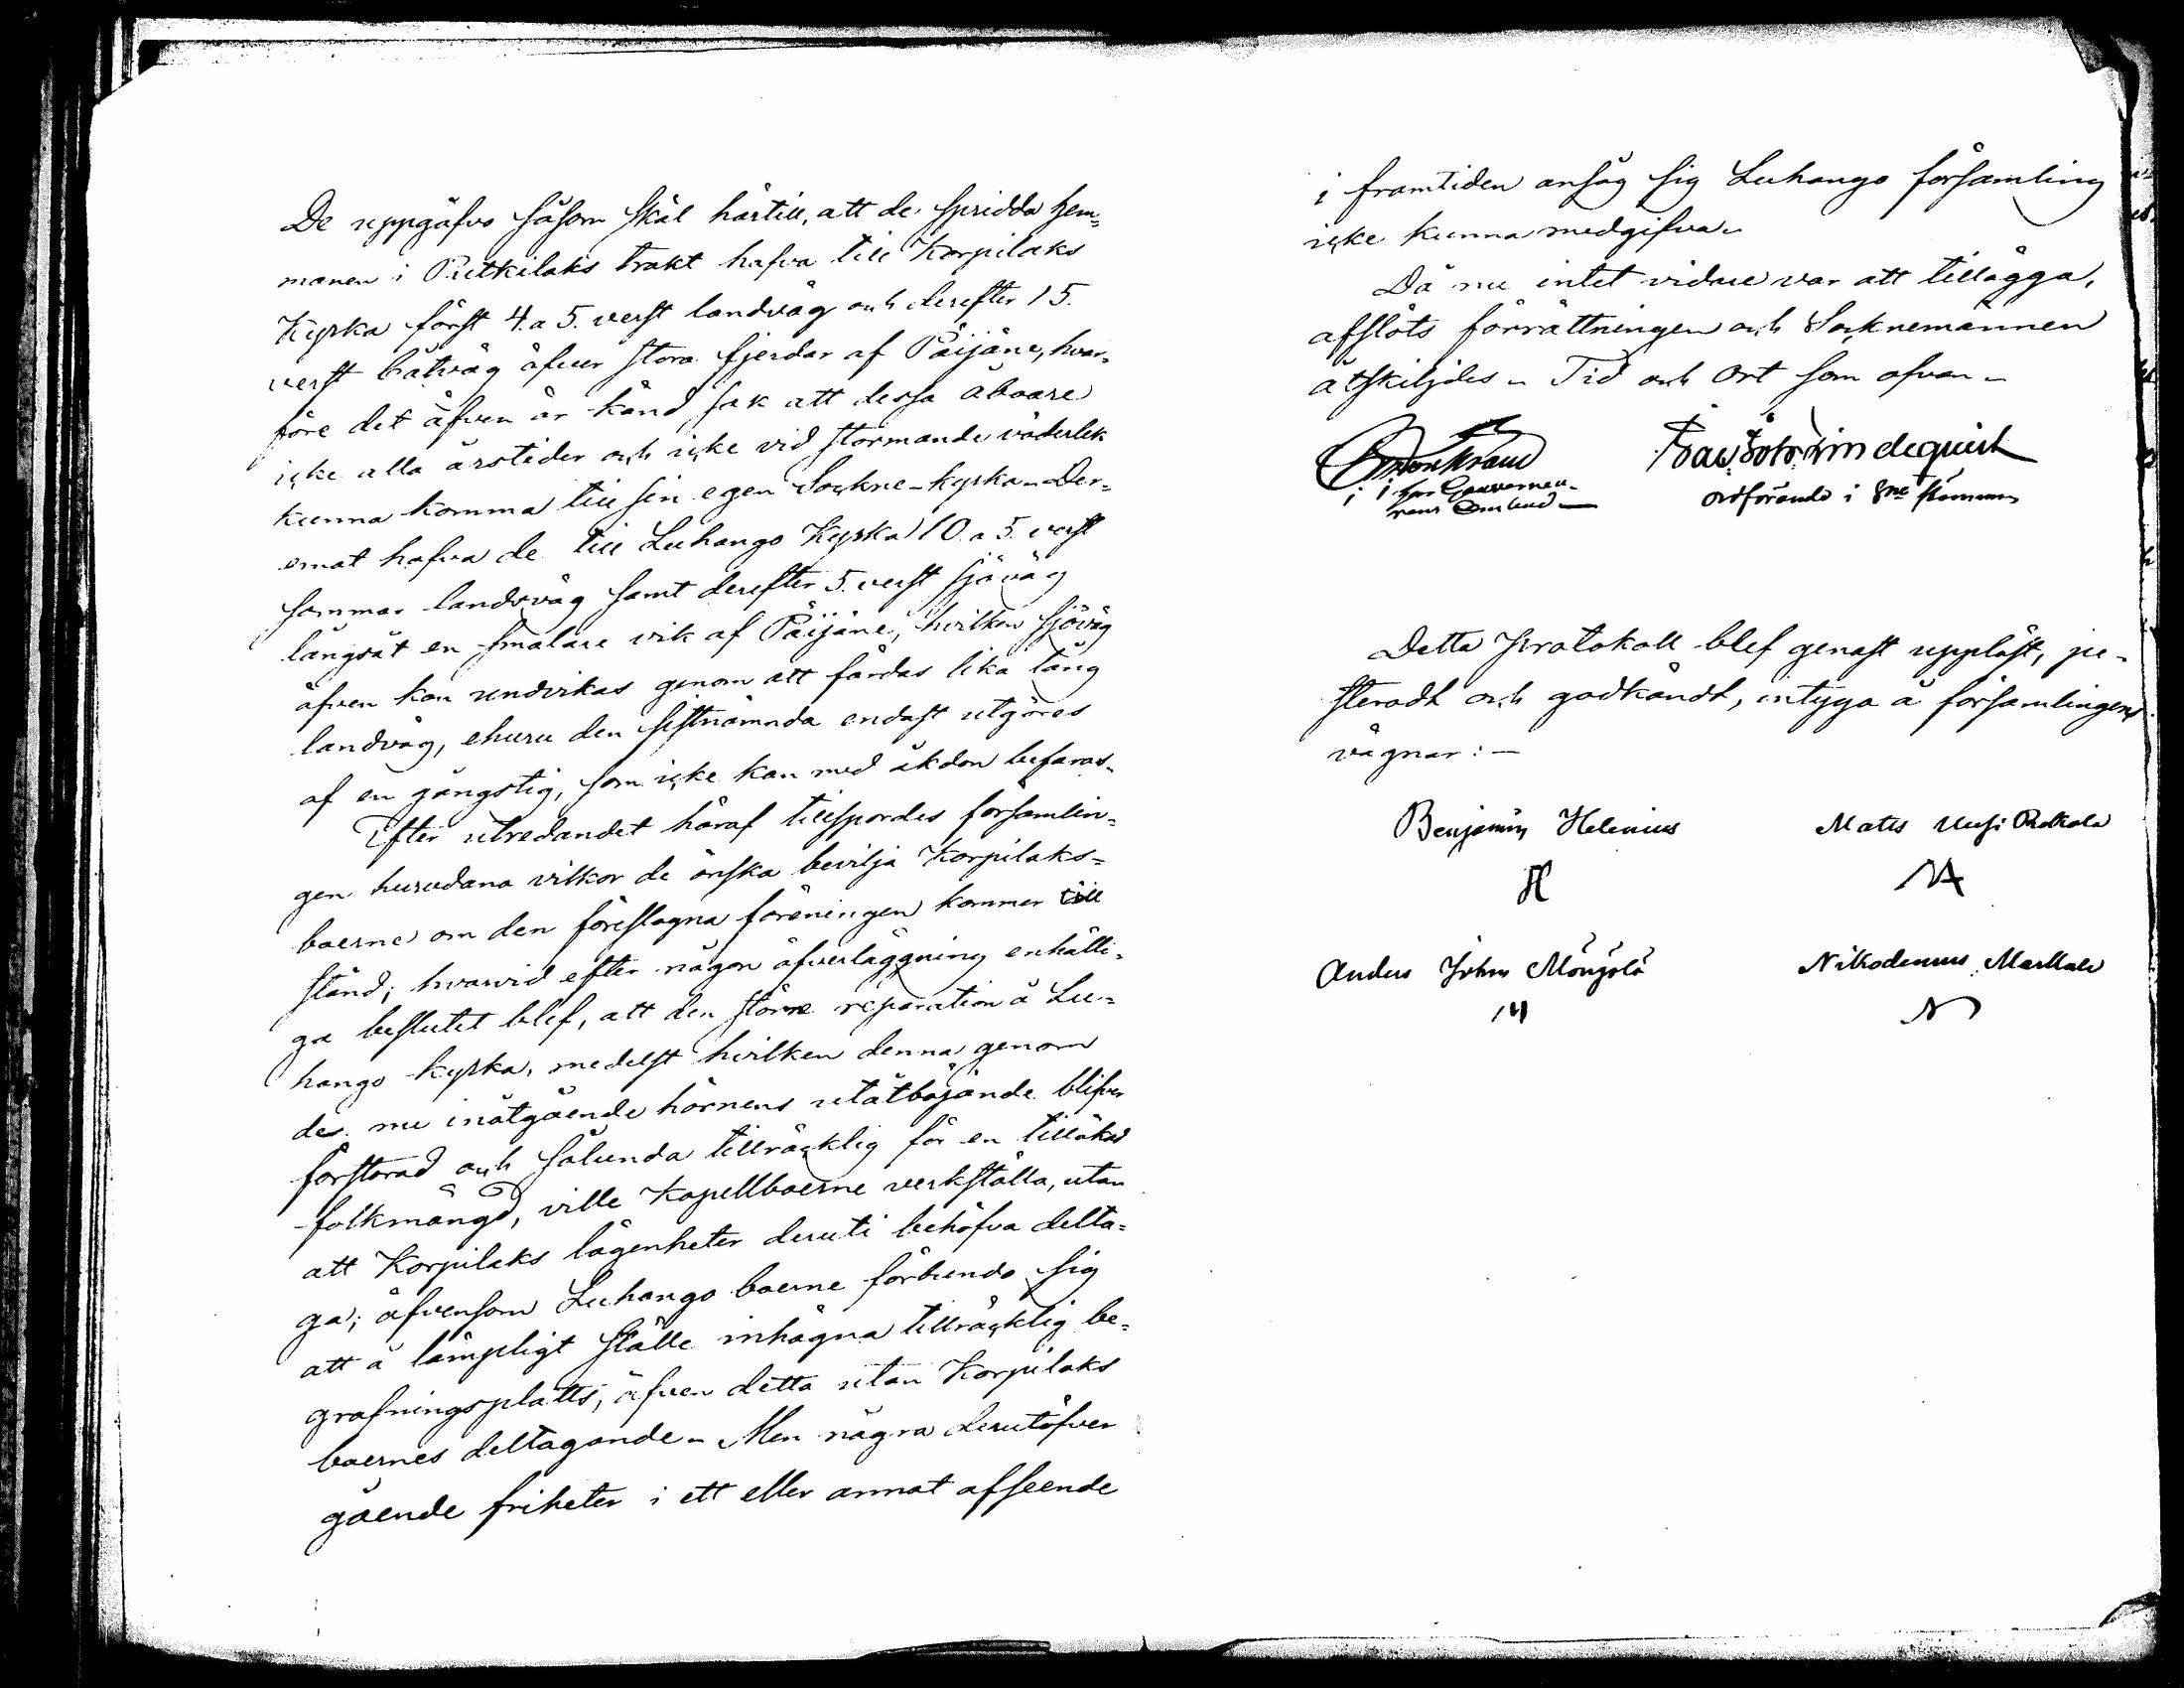 De uppgåfvo såsom skäl härtill, att de spridda hem-
manen i Putkilaks trakt hafva till Korpilaks
Kyrka först 4. a 5. verst landväg och derefter 15.
verst båtväg öfver stora fjerdar af Päijäne, hvar-
före det äfven är känd sak att dessa åboare
icke alla årstider och icke vid stormande väderlek
kunna komma till sin egen Sockne-kyrka. Der-
emot hafva de till Luhango Kyrka 10. a 5. verst
sommar landsväg samt derefter 5. verst sjöväg
längsåt en smalare vik af Päijäne, hvilken sjöväg
äfven kan undvikas genom att färdas lika lång
landväg, ehuru den sistnämnda endast utgöres
af en gångstig, som icke kan med åkdon befaras.
Efter utredandet häraf tillspordes församlin-
gen hurudana vilkor de önska bevilja Korpilaks-
boerne om den föreslagna föreningen kommer till
stånd; hvarvid efter någon öfverläggning enhälli-
ga beslutet blef, att den större reparation å Lu-
hango kyrka, medelst hvilken denna genom
des nu inåtgående hörnens utåtböjande blifver
förstorad och sålunda tillräcklig för en tillökad
folkmängd, ville Kapellboerne verkställa, utan
att Korpilaks lägenheter deruti behöfva delta-
ga; äfvensom Luhango boerne förbundo sig
att å lämpligt ställe inhägna tillräcklig be-
grafningsplatts, äfven detta utan Korpilaks
boernes deltagande. Men några derutöfver
gående friheter i ett eller annat afseende
i framtiden ansåg sig Luhango församling
icke kunna medgifva.
Då nu intet vidare var att tillägga,
afslöts förrättningen och Socknemännen
åtskiljdes. Tid och Ort som ofvan.
Lindequist
ordförande i stämman
Detta Protokoll blef genast uppläst, ju-
steradt och godkändt, intyga å församlingens
vägnar:-
Benjamin Helenius Mats
Anders Johns Nikodemus